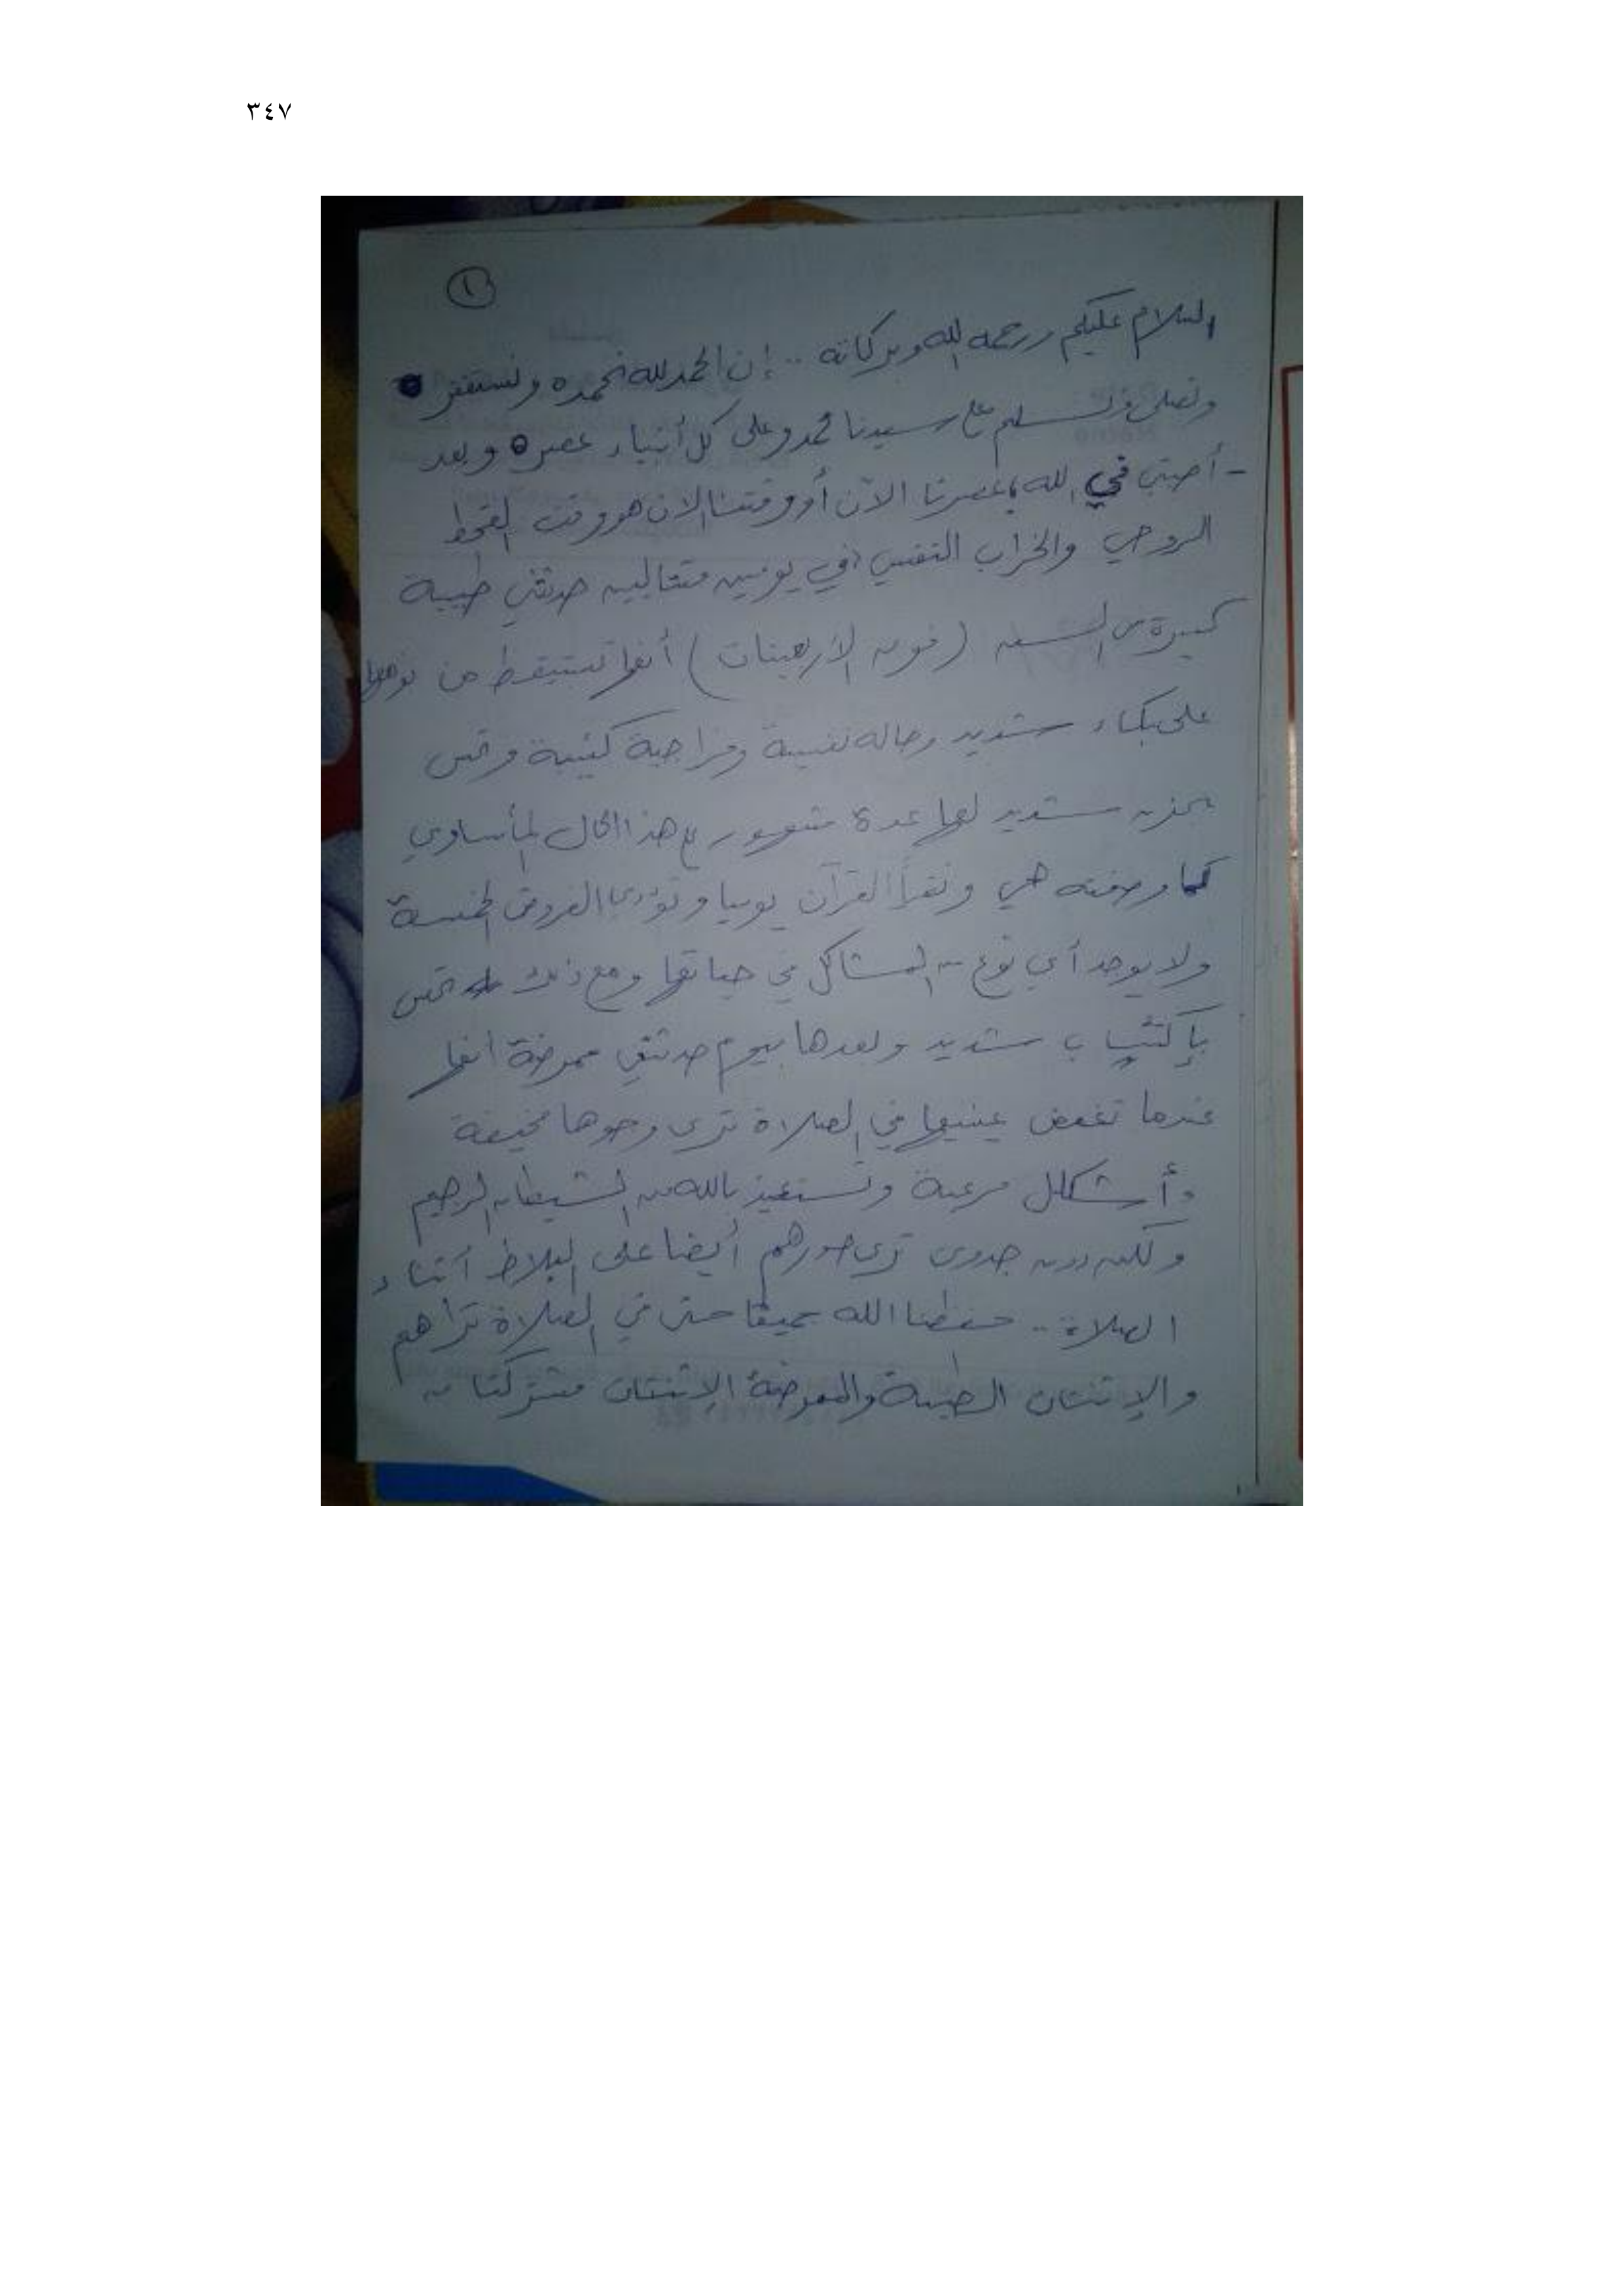 ٣٤٧
١
السلام عليكم ورحمه الله وبركاته .. إن الحمد لله نحمده ونستغفر
ونصلى ونسلم على سيدنا محمد وعلى كل أنبياء عصره وبعد
- أحبتي في الله، عصرنا الآن أو وقتنا الان هو وقت القحط
الروحي والخراب النفسي ففي يومين متتاليين حدثتني طبيبة
كبيرة في السن (فوق الأربعينات) أنها تستيقظ من نومها
على بكاء شديد وحاله نفسية ومزاجية كئيبة وتحس
بحزن شديد لها عدة شهور ع هذا الحال المأساوي
كما وصفته هي وتقرأ القرآن يوميا وتؤدى الفروض الخمسة
ولا يوجد أي نوع من المشاكل في حياتها ومع ذلك تحس
بإكتئاب شديد وبعدها بيوم حدثتني ممرضة انها
عندما تغمض عينيها في الصلاة ترى وجوها مخيفة
وأشكال مرعبة وتستعيذ بالله من الشيطان الرجيم
ولكن دون جدوى ترى صورهم أيضا على البلاط أثناء
الصلاة .. حفظنا الله جميعًا حتى في الصلاة تراهم
والإثنتان الطبيبة والممرضة الإثنتان مشتركتان